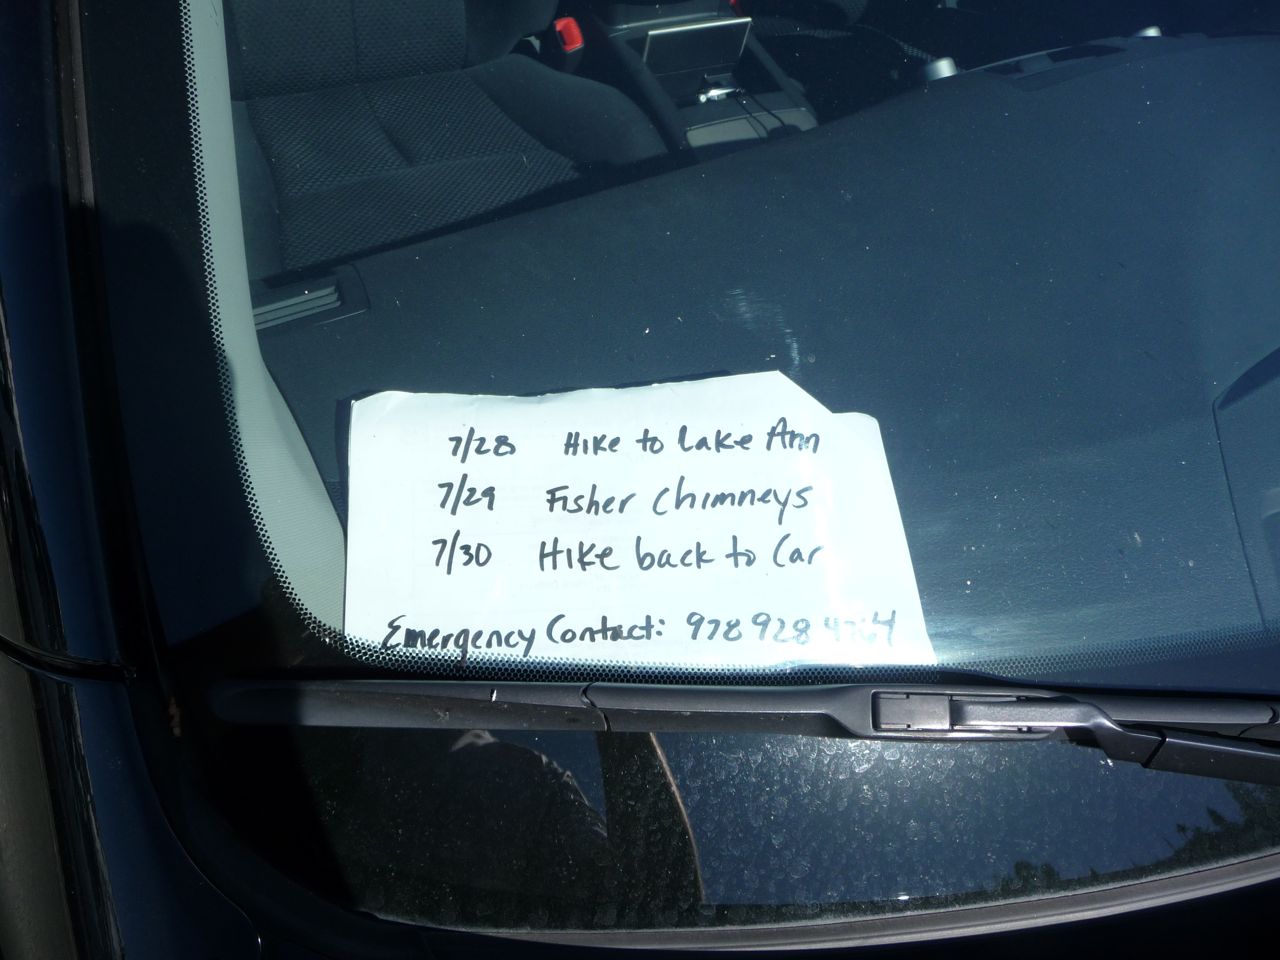 7/28 Hike to Lake Ann
7/29 Fisher Chimneys
7/30 Hike back to Car
Emergency Contact: 978 928